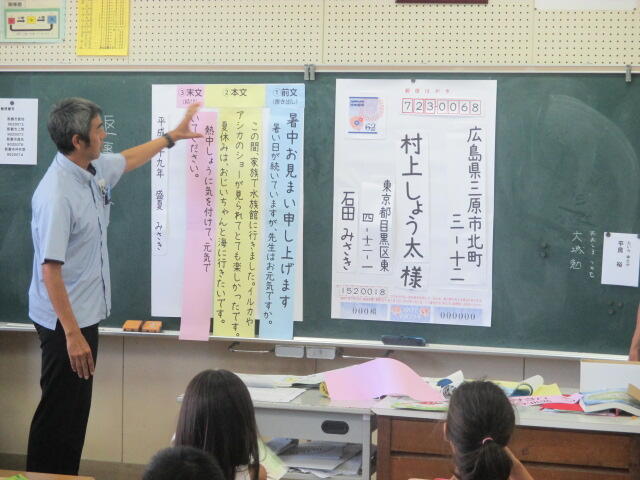 ①前文
(書き出し)
暑中お見まい申し上げます
暑い日が続いていますが、先生はお元気ですか。
②本文
この間、家族で水族館に行きました。イルカや
アシカのショーが見られてとても楽しかったです。
夏休みは、おじいちゃんと海に行きたいです。
③末文
熱中しょうに気を付けて、元気で
いてください。
盛夏 みさき
郵便はがき
7230068
62
広島県三原市北町
三-十二
村上しょう太様
東京都目黒区東
四-十二-
石田みさき
1520018
000組
000000
大城 勉
平良 裕